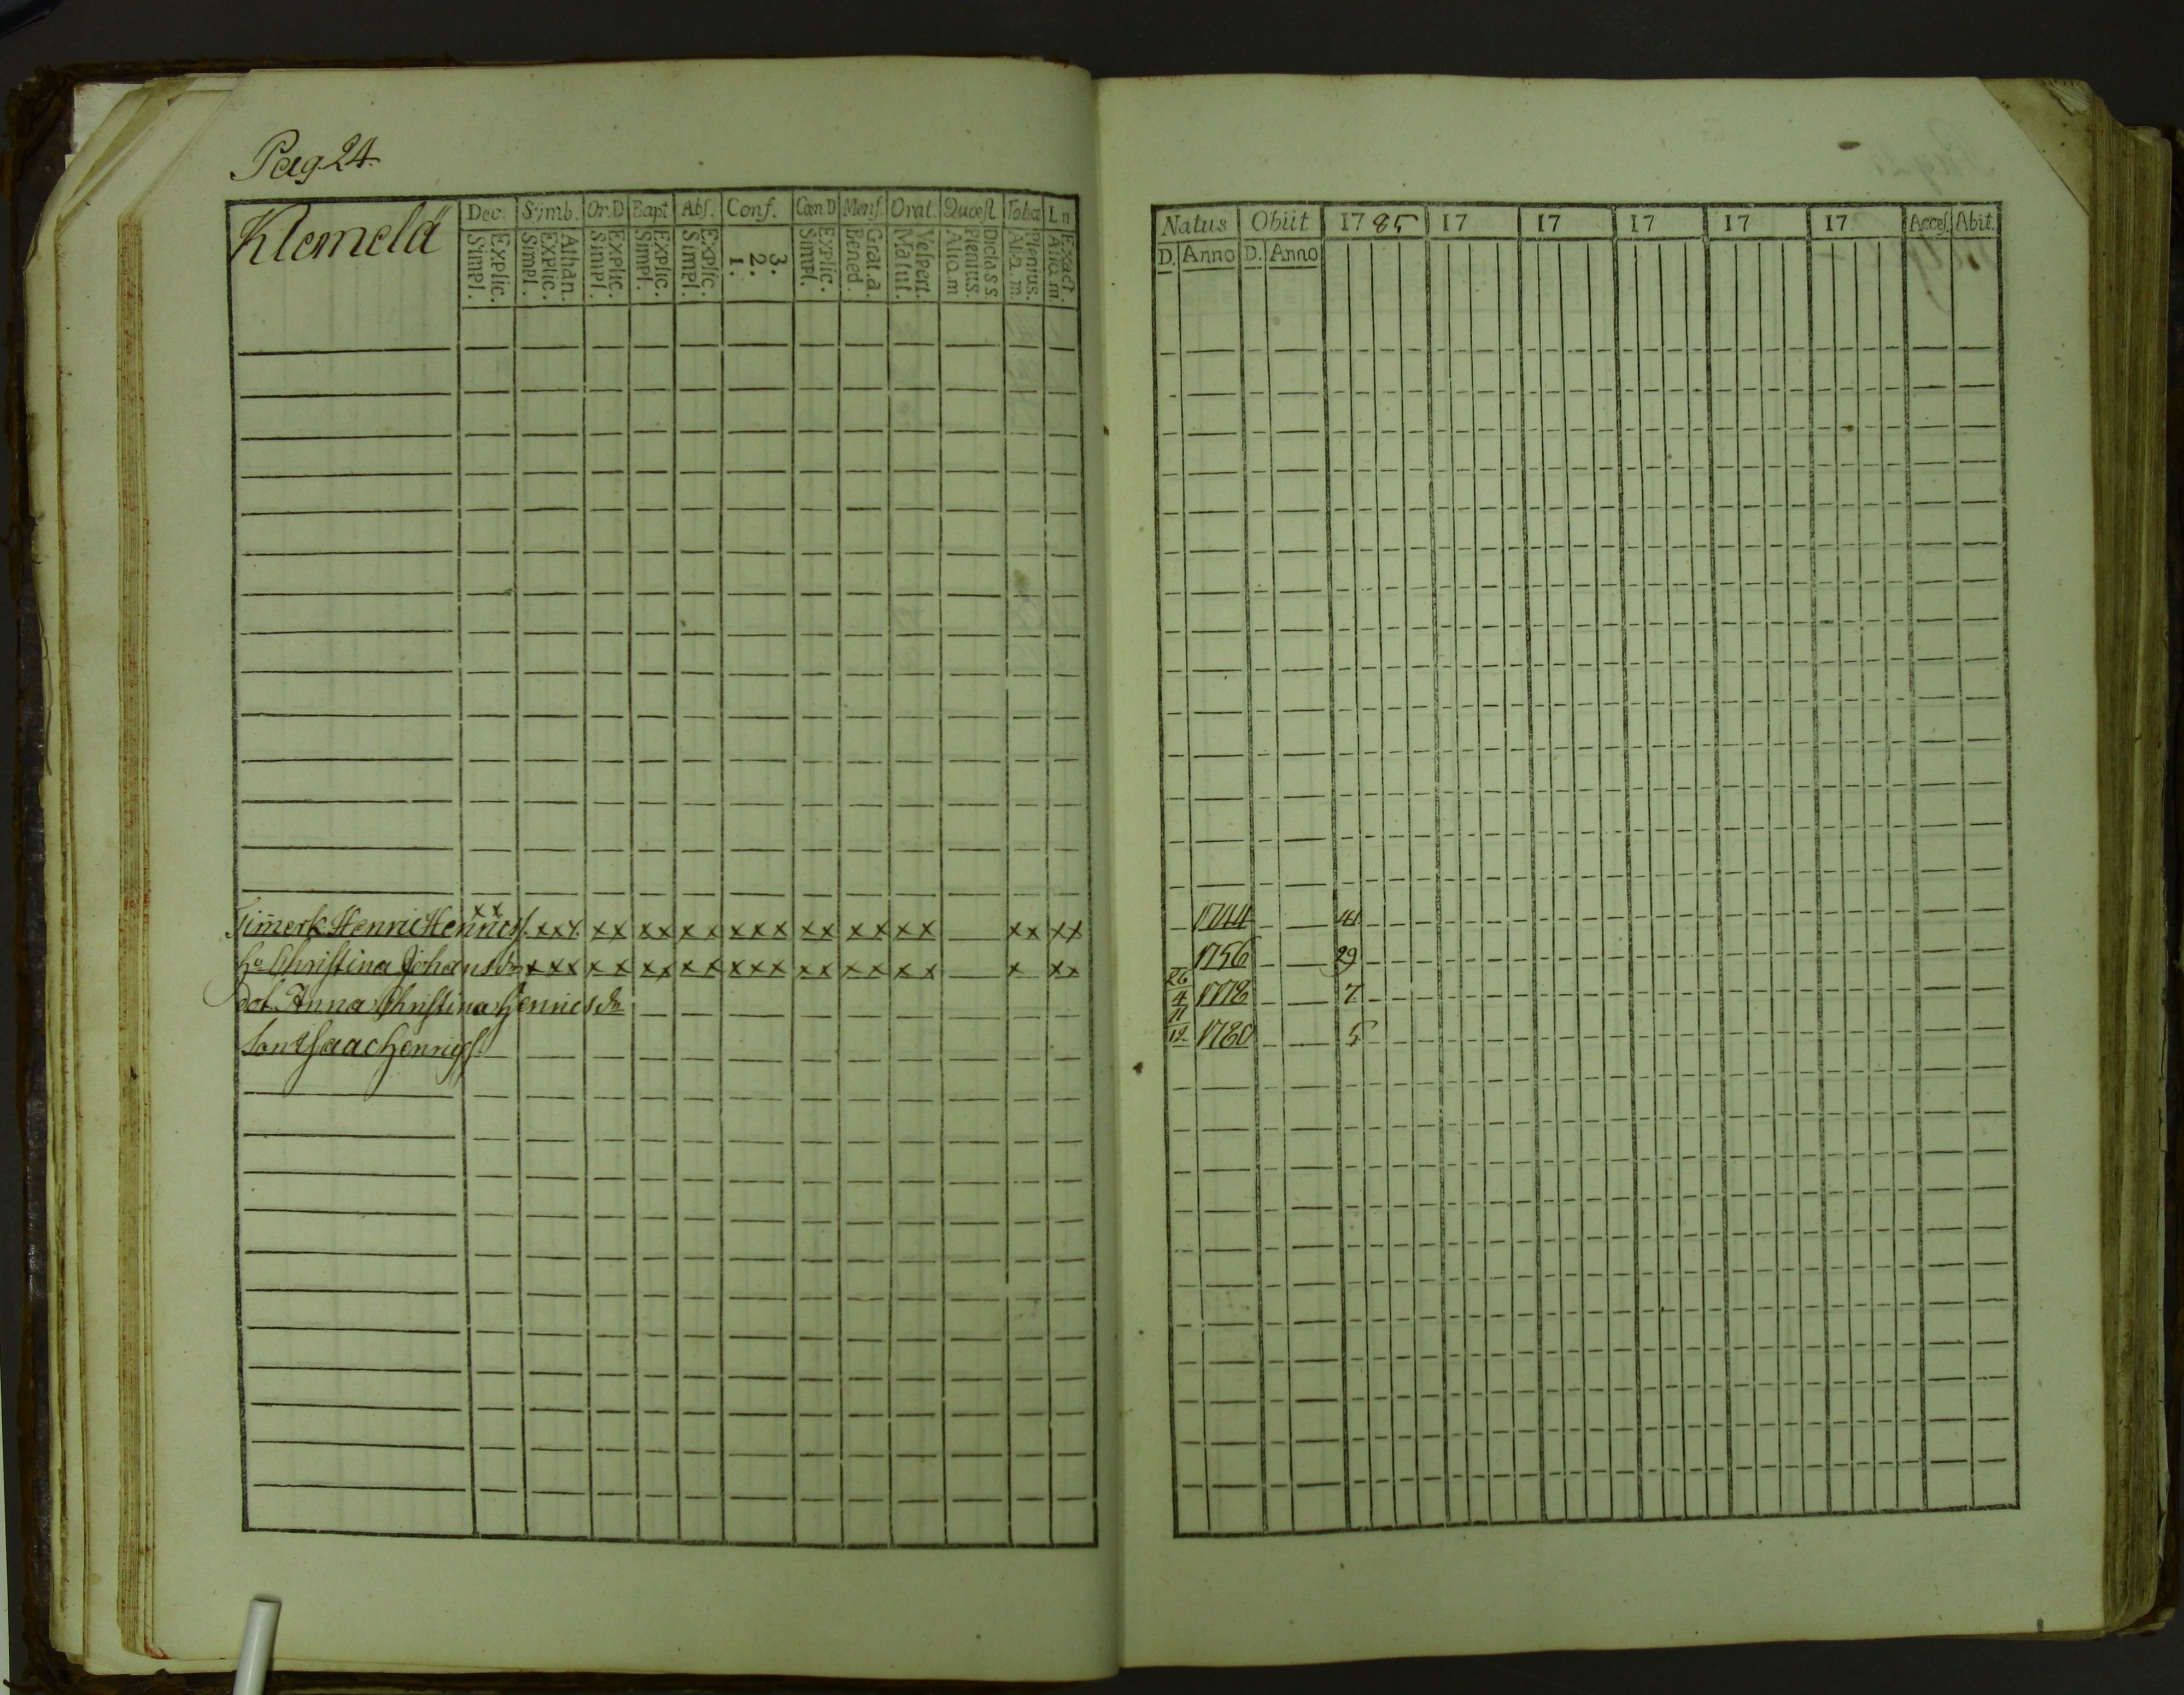 Pag. 24.
Klemelä
Dec. Symb. Or.D Bapt Abs. Conf. Cœn.D Mens. Orat. Quæst Taba Ln
Simpl. Explic. Simpl. Explic. Athan. Simpl. Explic. Simpl. Explic. Simpl. Explic. 1. 2. 3. Simpl. Explic. Bened. Grat. a. Matut. Vespert. Aliq. m Plenius. Dict a S S Aliq. m. Plenius. Aliq. m Exact.
Tim̄erk Henric Henricss. xx xxx xx xx xx xxx xx xx xx xx xx
h:o Christina Johansdr xxx xx xx xx xxx xx xx xx x xx
dot. Anna Christina Henricsdr
Son Isaac Henricss.
Natus Obiit 1785 17 17 17 17 17 Acces. Abit.
D. Anno D. Anno
1744 41
1756 29
26/4 1778 7
11/12 1780 5